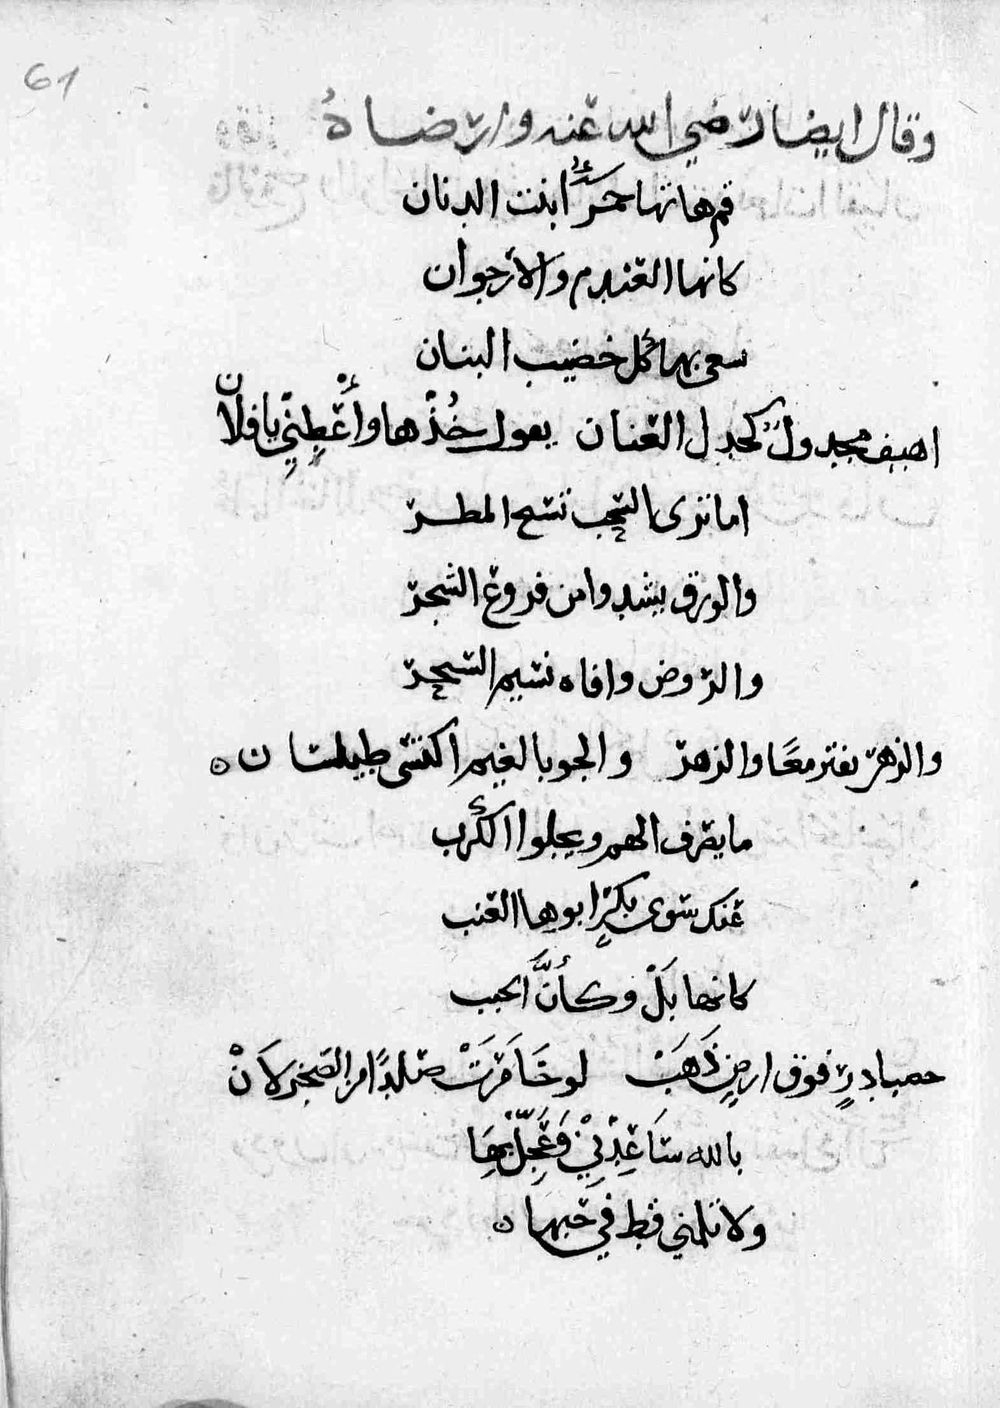 61
وقال ايضا رضي الله عنه وارضاهُ
قم هاتها حمرَّاءُ ابنت الدنان
كانها العندم والأرجوان
سعى بها كل خضيب البنان
اهيف مجدول كجدل العنان يقول خُذْها وأعْطِنِي يا فلان
اما ترى السحب تسح المطر
والورق يشدوا من فروع الشجر
والروض وافاه نسيم السحر
والزهر يفتر معًا والزهر والجو بالغيم اكتسى طيلسان ٥
ما يصرف الهم ويجلوا الكُرب
عنك سوى بكرٍ ابوها العنب
كانها بَلْ وكأنَّ الحبب
حصبا درٍ فوق ارضٍ ذَهَبْ لو خَامَرَتْ صلدًا من الصخر لاَنْ
بالله سَاعِدْنِيْ وَعَجّلْ بهَا
ولا تلمني قط في حبها ٥